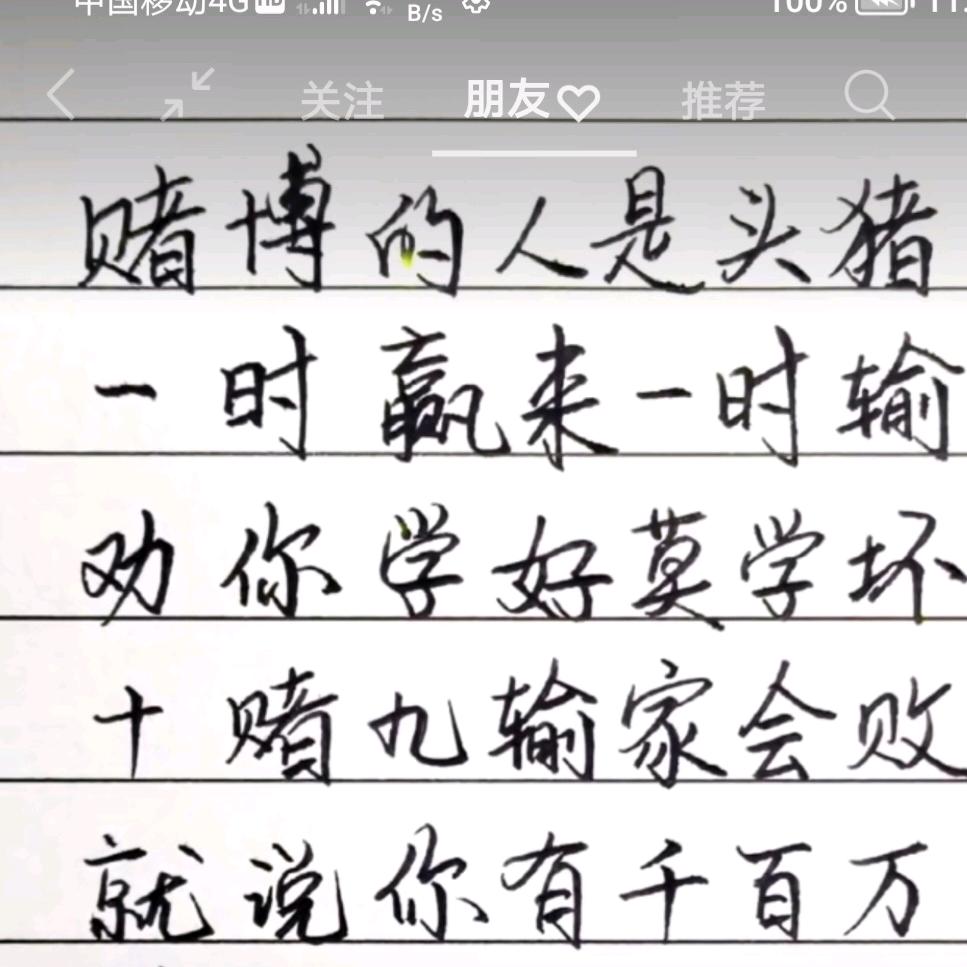 中国移动4G HD B/s 100% 11
关注 朋友♡ 推荐
赌博的人是头猪
一时赢来一时输
劝你学好莫学坏
十赌九输家会败
就说你有千百万